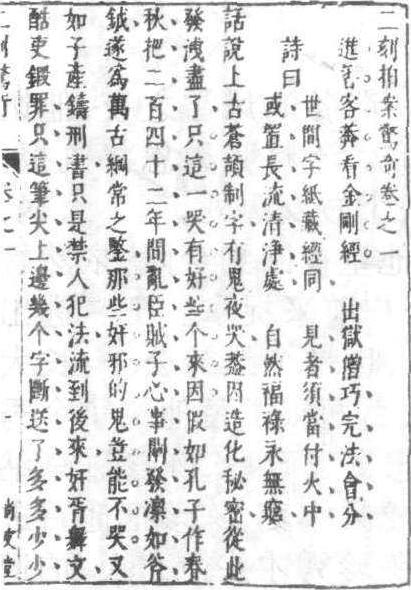 二刻拍案驚奇卷之一
進香客莽看金剛經 出獄僧巧完法會分
詩曰
世間字紙藏經同 見者須當付火中
或置長流清淨處 自然福祿永無窮
話說上古蒼頡制字有鬼夜哭蓋因造化秘密從此
發洩盡了只這一哭有好些个來因假如孔子作春
秋把二百四十二年間亂臣賊子心事闡發凜如斧
鉞遂為萬古綱常之鑒那些奸邪的鬼豈能不哭又
如子產鑄刑書只是禁人犯法流到後來奸胥舞文
酷吏鍛罪只這筆尖上邊幾个字斷送了多多少少
二刻驚奇 卷之一 一 尚友堂